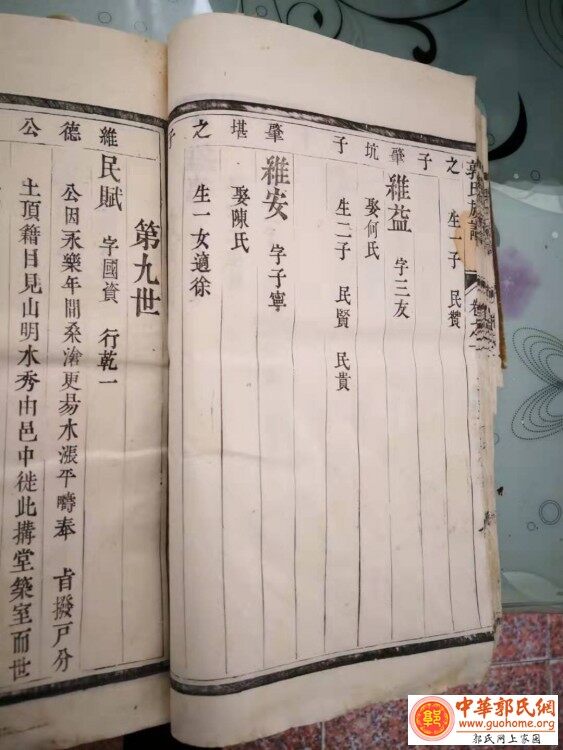 郭氏族譜
之子 生一子 民贊
肇坑子 維益 字三友
娶何氏
生二子 民賢 民貴
肇堪之子 維安 字子寧
娶陳氏
生一女適徐
第九世
維德公 民賦 字國資 行乾一
公因永樂年間桑滄更易水漲平疇奉 旨撥戶分
土頂籍目見山明水秀由邑中徙此搆堂築室而世
中華郭氏網
www.guohome.org
郭氏网上家园